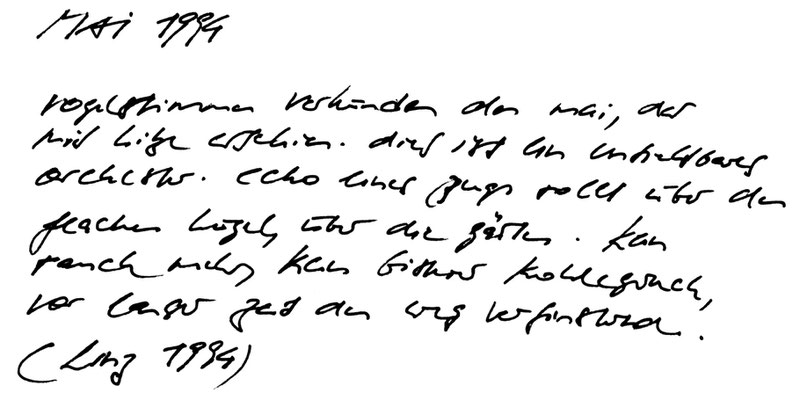 MAi 1994
vogelstimmen verkünden den mai, der
mit hitze erschien. dies ist ein unsichtbares
orchester. echo eines zugs rollt über den
flachen hügel, über die gärten. kein
rauch mehr, kein bitterer kohlegeruch,
vor langer zeit den weg verfinsternd.
(Linz 1994)